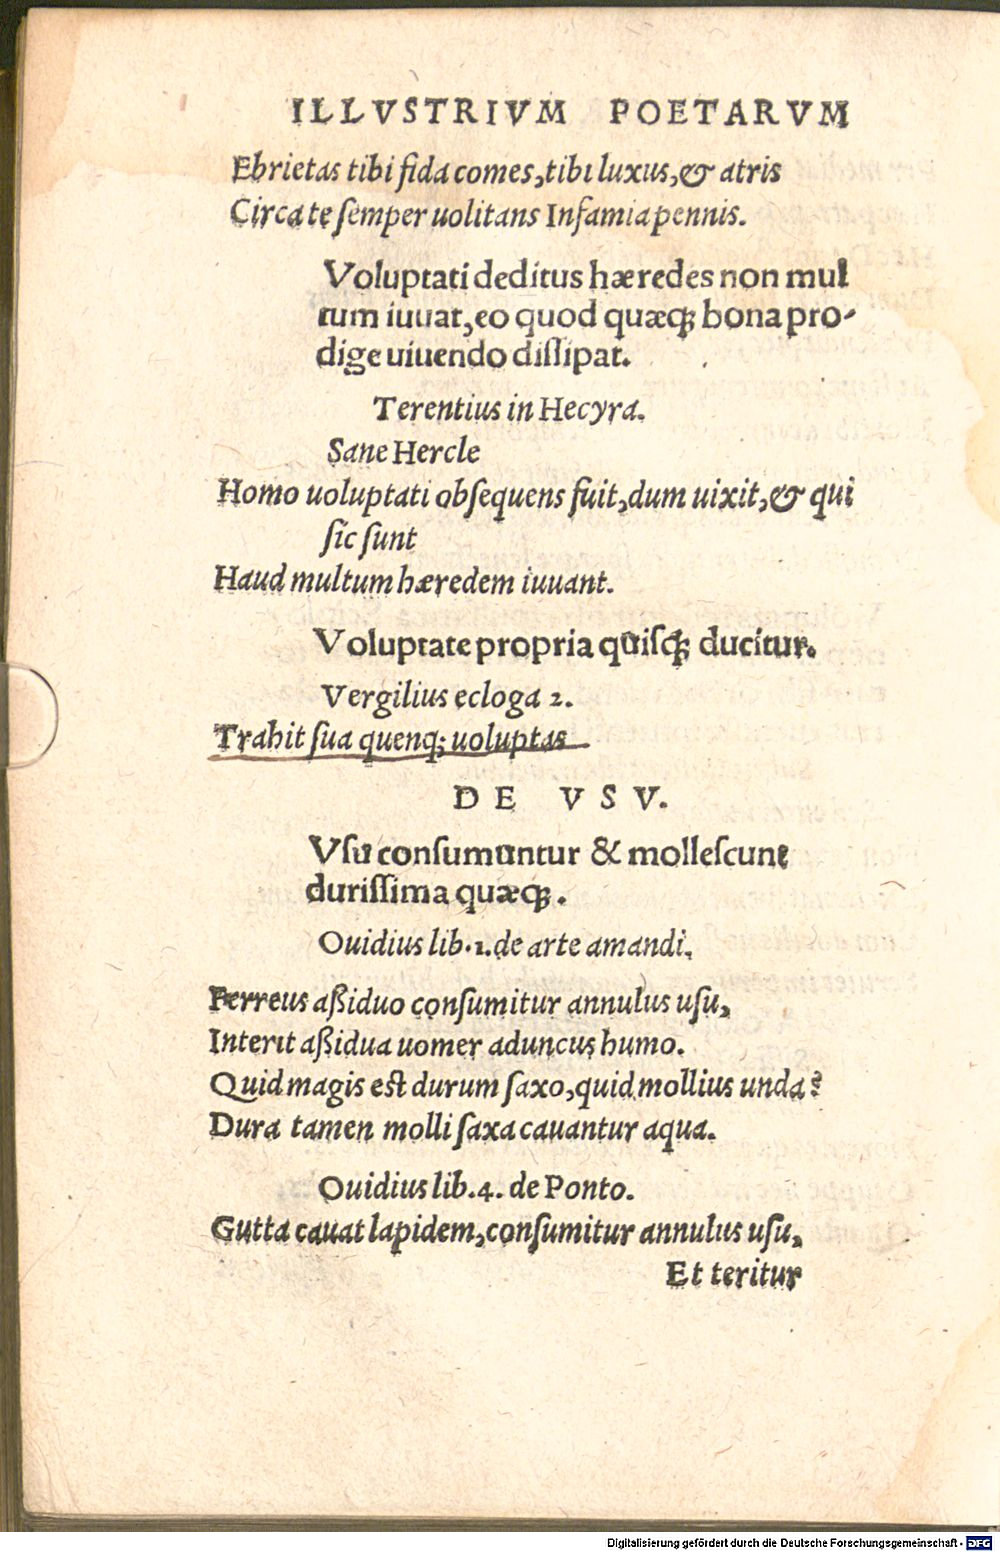 ILLVSTRIVM POETARVM
Ebrietas tibi fida comes, tibi luxus, & atris
Circa te ſemper uolitans Infamia pennis.
Voluptati deditus hæredes non mul
tum iuuat, eo quod quæq; bona pro-
dige uiuendo diſſipat.
Terentius in Hecyra.
Sane Hercle
Homo uoluptati obſequens fuit, dum uixit, & qui
ſic ſunt
Haud multum hæredem iuuant.
Voluptate propria quiſq; ducitur.
Vergilius ecloga 2.
Trahit ſua quenq; uoluptas
DE VSV.
Vſu conſumuntur & molleſcunt
duriſſima quæq;.
Ouidius lib. 1. de arte amandi.
Ferreus aßiduo conſumitur annulus uſu,
Interit aßidua uomer aduncus humo.
Quid magis eſt durum ſaxo, quid mollius unda?
Dura tamen molli ſaxa cauantur aqua.
Ouidius lib. 4. de Ponto.
Gutta cauat lapidem, conſumitur annulus uſu,
Et teritur
Digitalisierung gefördert durch die Deutsche Forschungsgemeinschaft - DFG